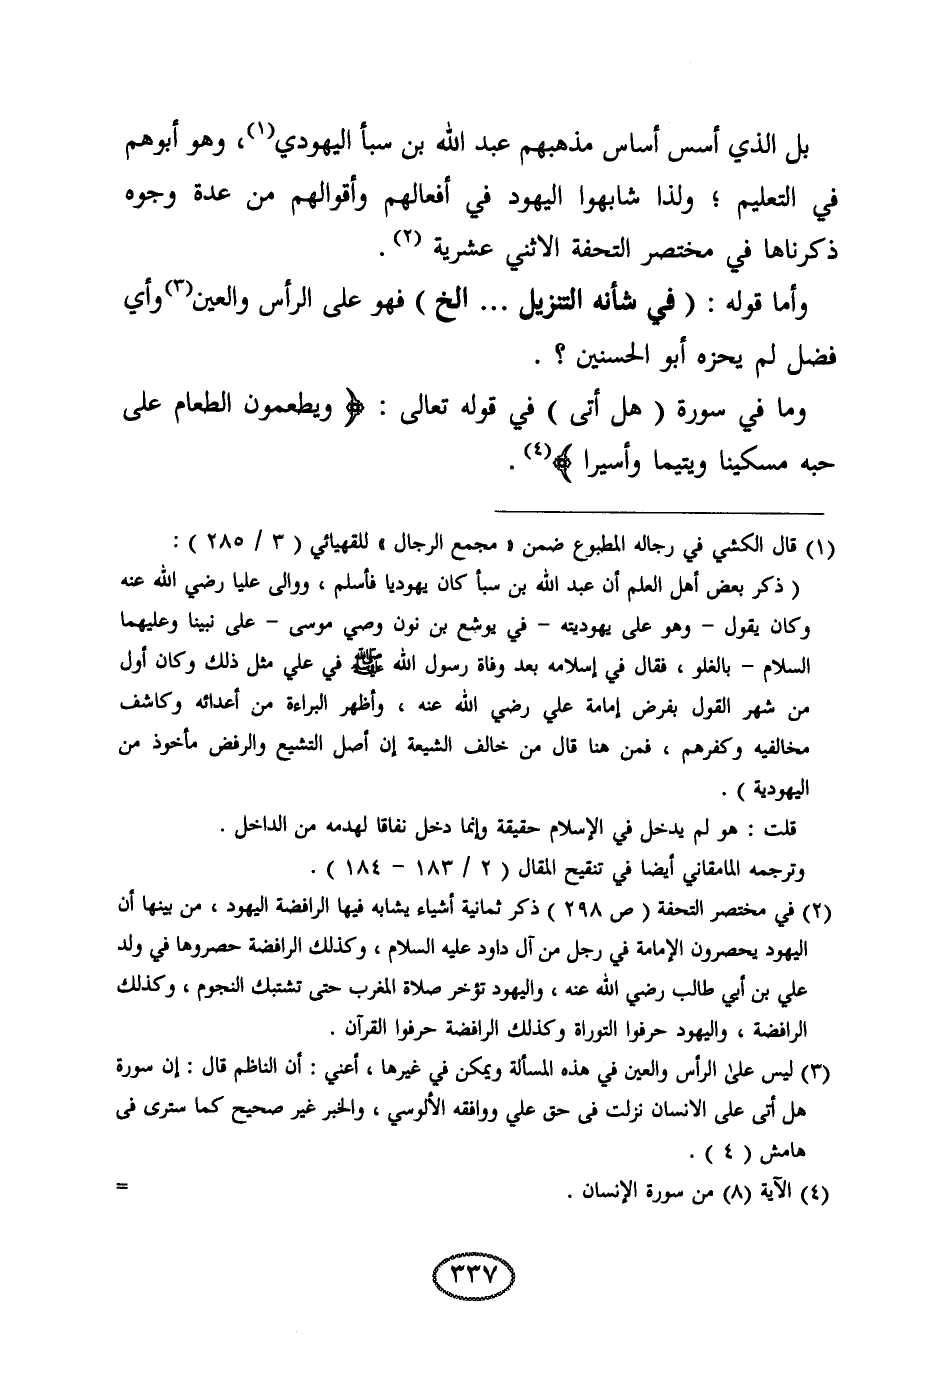 بل الذي أسس أساس مذهبهم عبد الله بن سبأ اليهودي(١)، وهو أبوهم
في التعليم ؛ ولذا شابهوا اليهود في أفعالهم وأقوالهم من عدة وجوه
ذكرناها في مختصر التحفة الاثني عشرية (٢).
وأما قوله : ( في شأنه التنزيل ... الخ ) فهو على الرأس والعين(٣) وأي
فضل لم يحزه أبو الحسنين ؟ .
وما في سورة ( هل أتى ) في قوله تعالى : ﴿ ويطعمون الطعام على
حبه مسكينا ويتيما وأسيرا ﴾(٤) .
(١) قال الكشي في رجاله المطبوع ضمن « مجمع الرجال » للقهبائي ( ٣ / ٢٨٥ ) :
( ذكر بعض أهل العلم أن عبد الله بن سبأ كان يهوديا فأسلم ، ووالى عليا رضي الله عنه
وكان يقول – وهو على يهوديته – في يوشع بن نون وصي موسى – على نبينا وعليهما
السلام – بالغلو ، فقال في إسلامه بعد وفاة رسول الله ﷺ في علي مثل ذلك وكان أول
من شهر القول بفرض إمامة علي رضي الله عنه ، وأظهر البراءة من أعدائه وكاشف
مخالفيه وكفرهم ، فمن هنا قال من خالف الشيعة إن أصل التشيع والرفض مأخوذ من
اليهودية ) .
قلت : هو لم يدخل في الإسلام حقيقة وإنما دخل نفاقا لهدمه من الداخل .
وترجمه المامقاني أيضا في تنقيح المقال ( ٢ / ١٨٣ – ١٨٤ ) .
(٢) في مختصر التحفة ( ص ٢٩٨ ) ذكر ثمانية أشياء يشابه فيها الرافضة اليهود ، من بينها أن
اليهود يحصرون الإمامة في رجل من آل داود عليه السلام ، وكذلك الرافضة حصروها في ولد
علي بن أبي طالب رضي الله عنه ، واليهود تؤخر صلاة المغرب حتى تشتبك النجوم ، وكذلك
الرافضة ، واليهود حرفوا التوراة وكذلك الرافضة حرفوا القرآن .
(٣) ليس على الرأس والعين في هذه المسألة ويمكن في غيرها ، أعني : أن الناظم قال : إن سورة
هل أتى على الانسان نزلت فى حق علي ووافقه الألوسي ، والخبر غير صحيح كما سترى فى
هامش ( ٤ ) .
(٤) الآية (٨) من سورة الإنسان . =
٣٣٧